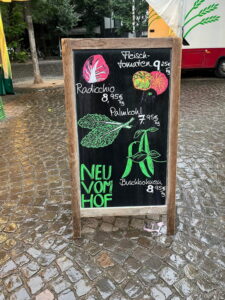 Fleisch-
tomaten 9,25€
Radicchio 8,95€
Palmkohl 7,95€
NEU
VOM
HOF
Buschbohnen
8,95€